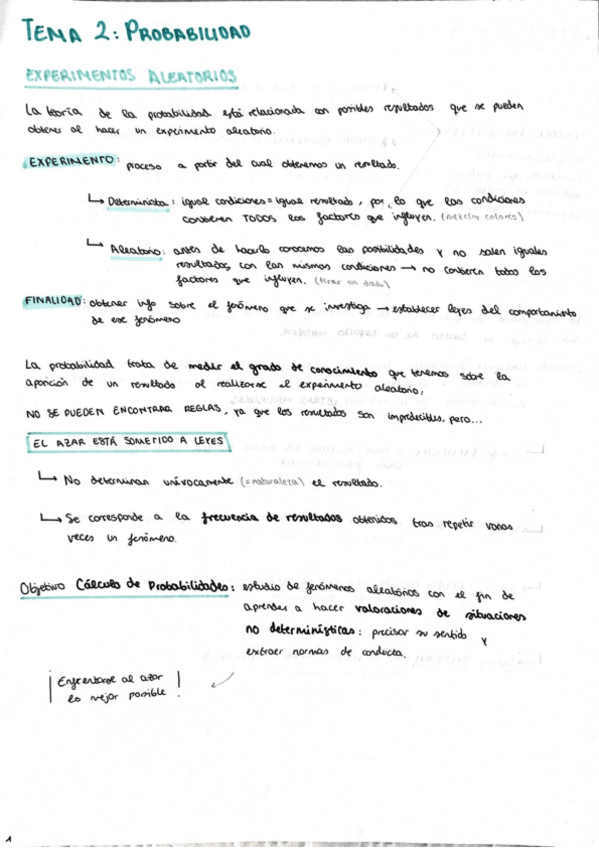 TEMA 2: PROBABILIDAD
EXPERIMENTOS ALEATORIOS
La teoría de la probabilidad está relacionada con posibles resultados que se pueden
obtener al hacer un experimento aleatorio.
EXPERIMENTO: proceso a partir del cual obtenemos un resultado.
↳ Determinista: igual condiciones = igual resultado, por lo que las condiciones
contienen TODOS los factores que influyen. (mezclar colores)
↳ Aleatorio: antes de hacerlo conocemos las posibilidades y no salen iguales
resultados, con las mismas condiciones → no contienen todos los
factores que influyen. (tirar un dado)
FINALIDAD: obtener info sobre el fenómeno que se investiga → establecer leyes del comportamiento
de ese fenómeno
La probabilidad trata de medir el grado de conocimiento que tenemos sobre la
aparición de un resultado al realizarse el experimento aleatorio,
NO SE PUEDEN ENCONTRAR REGLAS, ya que los resultados son impredecibles, pero...
EL AZAR ESTÁ SOMETIDO A LEYES
↳ No determinan unívocamente (=naturaleza) el resultado.
↳ Se corresponde a la frecuencia de resultados obtenidos tras repetir varias
veces un fenómeno.
Objetivo Cálculo de Probabilidades: estudio de fenómenos aleatorios con el fin de
aprender a hacer valoraciones de situaciones
no determinísticas: precisar su sentido y
extraer normas de conducta.
¡Enfrentarse al azar
lo mejor posible!
1